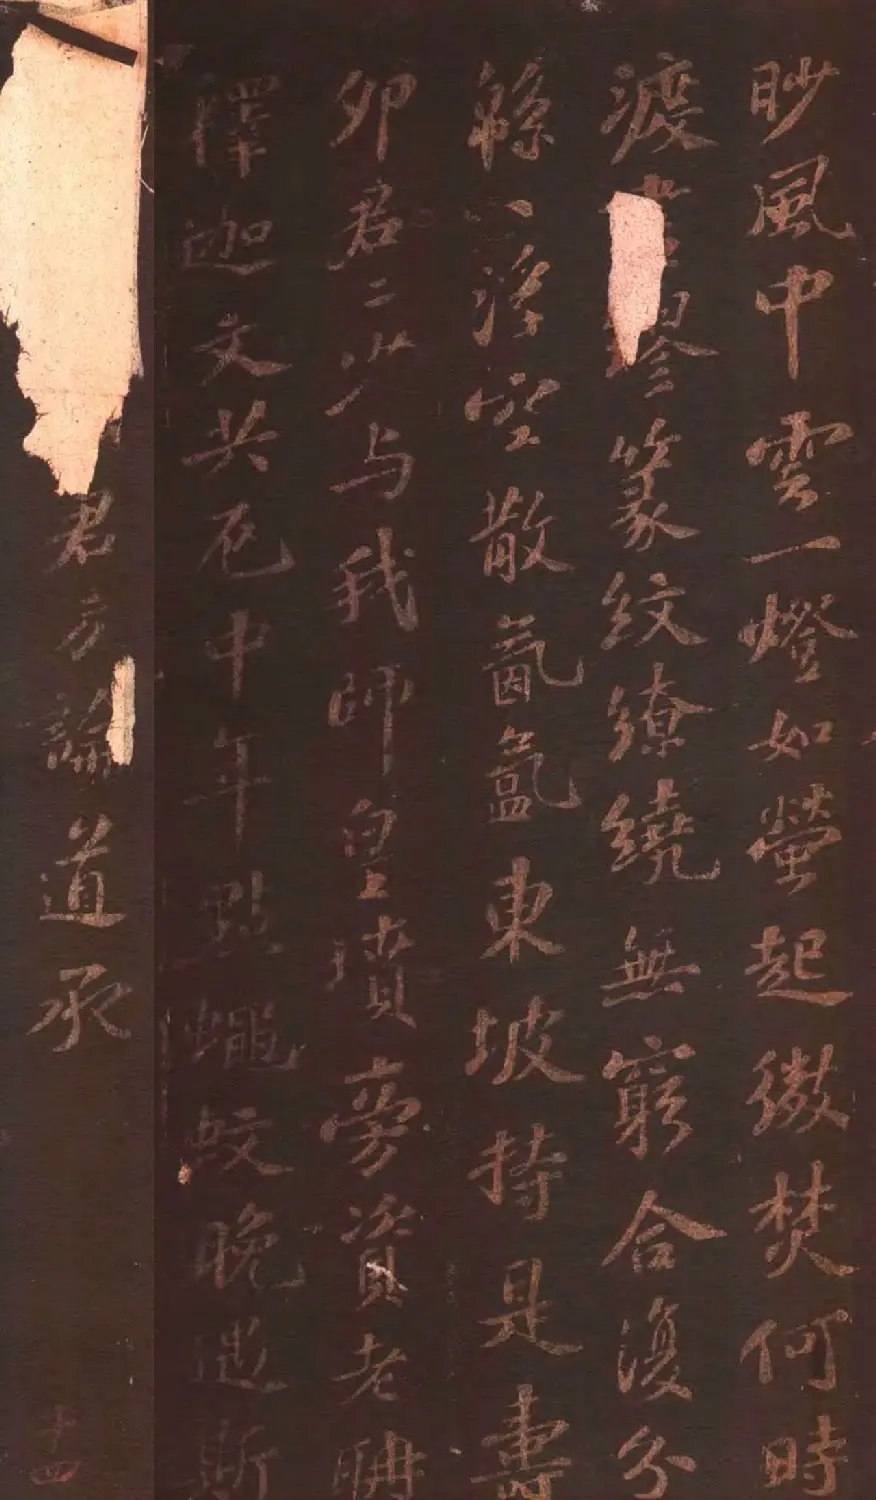 眇風中雲一燈如螢起微焚何時
渡 繆篆紋繚繞無窮合復分
緜〻浮空散氤氳東坡持是壽
卯君〻少与我師皇墳旁資老聃
釋迦文共厄中年點蠅蚊晚遇斯
君方論道承
十四